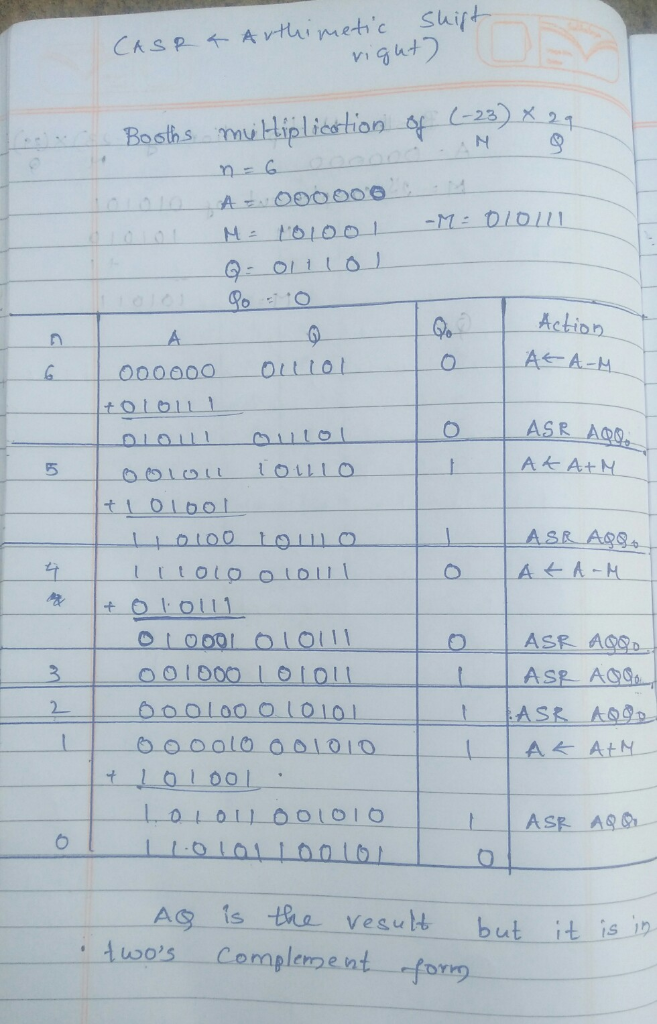 (ASR ← Arthimetic Shift
right)
Booths multiplication of (-23) × 29
M Q
n = 6
A = 000000
M = 101001 -M = 010111
Q = 011101
Q₀ = 0
n A Q Q₀ Action
6 000000 011101 0 A ← A-M
+010111
010111 011101 0 ASR AQQ₀
5 001011 101110 1 A ← A+M
+101001
110100 101110 1 ASR AQQ₀
4 111010 010111 0 A ← A-M
+010111
010001 010111 0 ASR AQQ₀
3 001000 101011 1 ASR AQQ₀
2 000100 010101 1 ASR AQQ₀
1 000010 001010 1 A ← A+M
+101001
101011 001010 1 ASR AQQ₀
0 110101 100101 0
AQ is the result but it is in
two's complement form